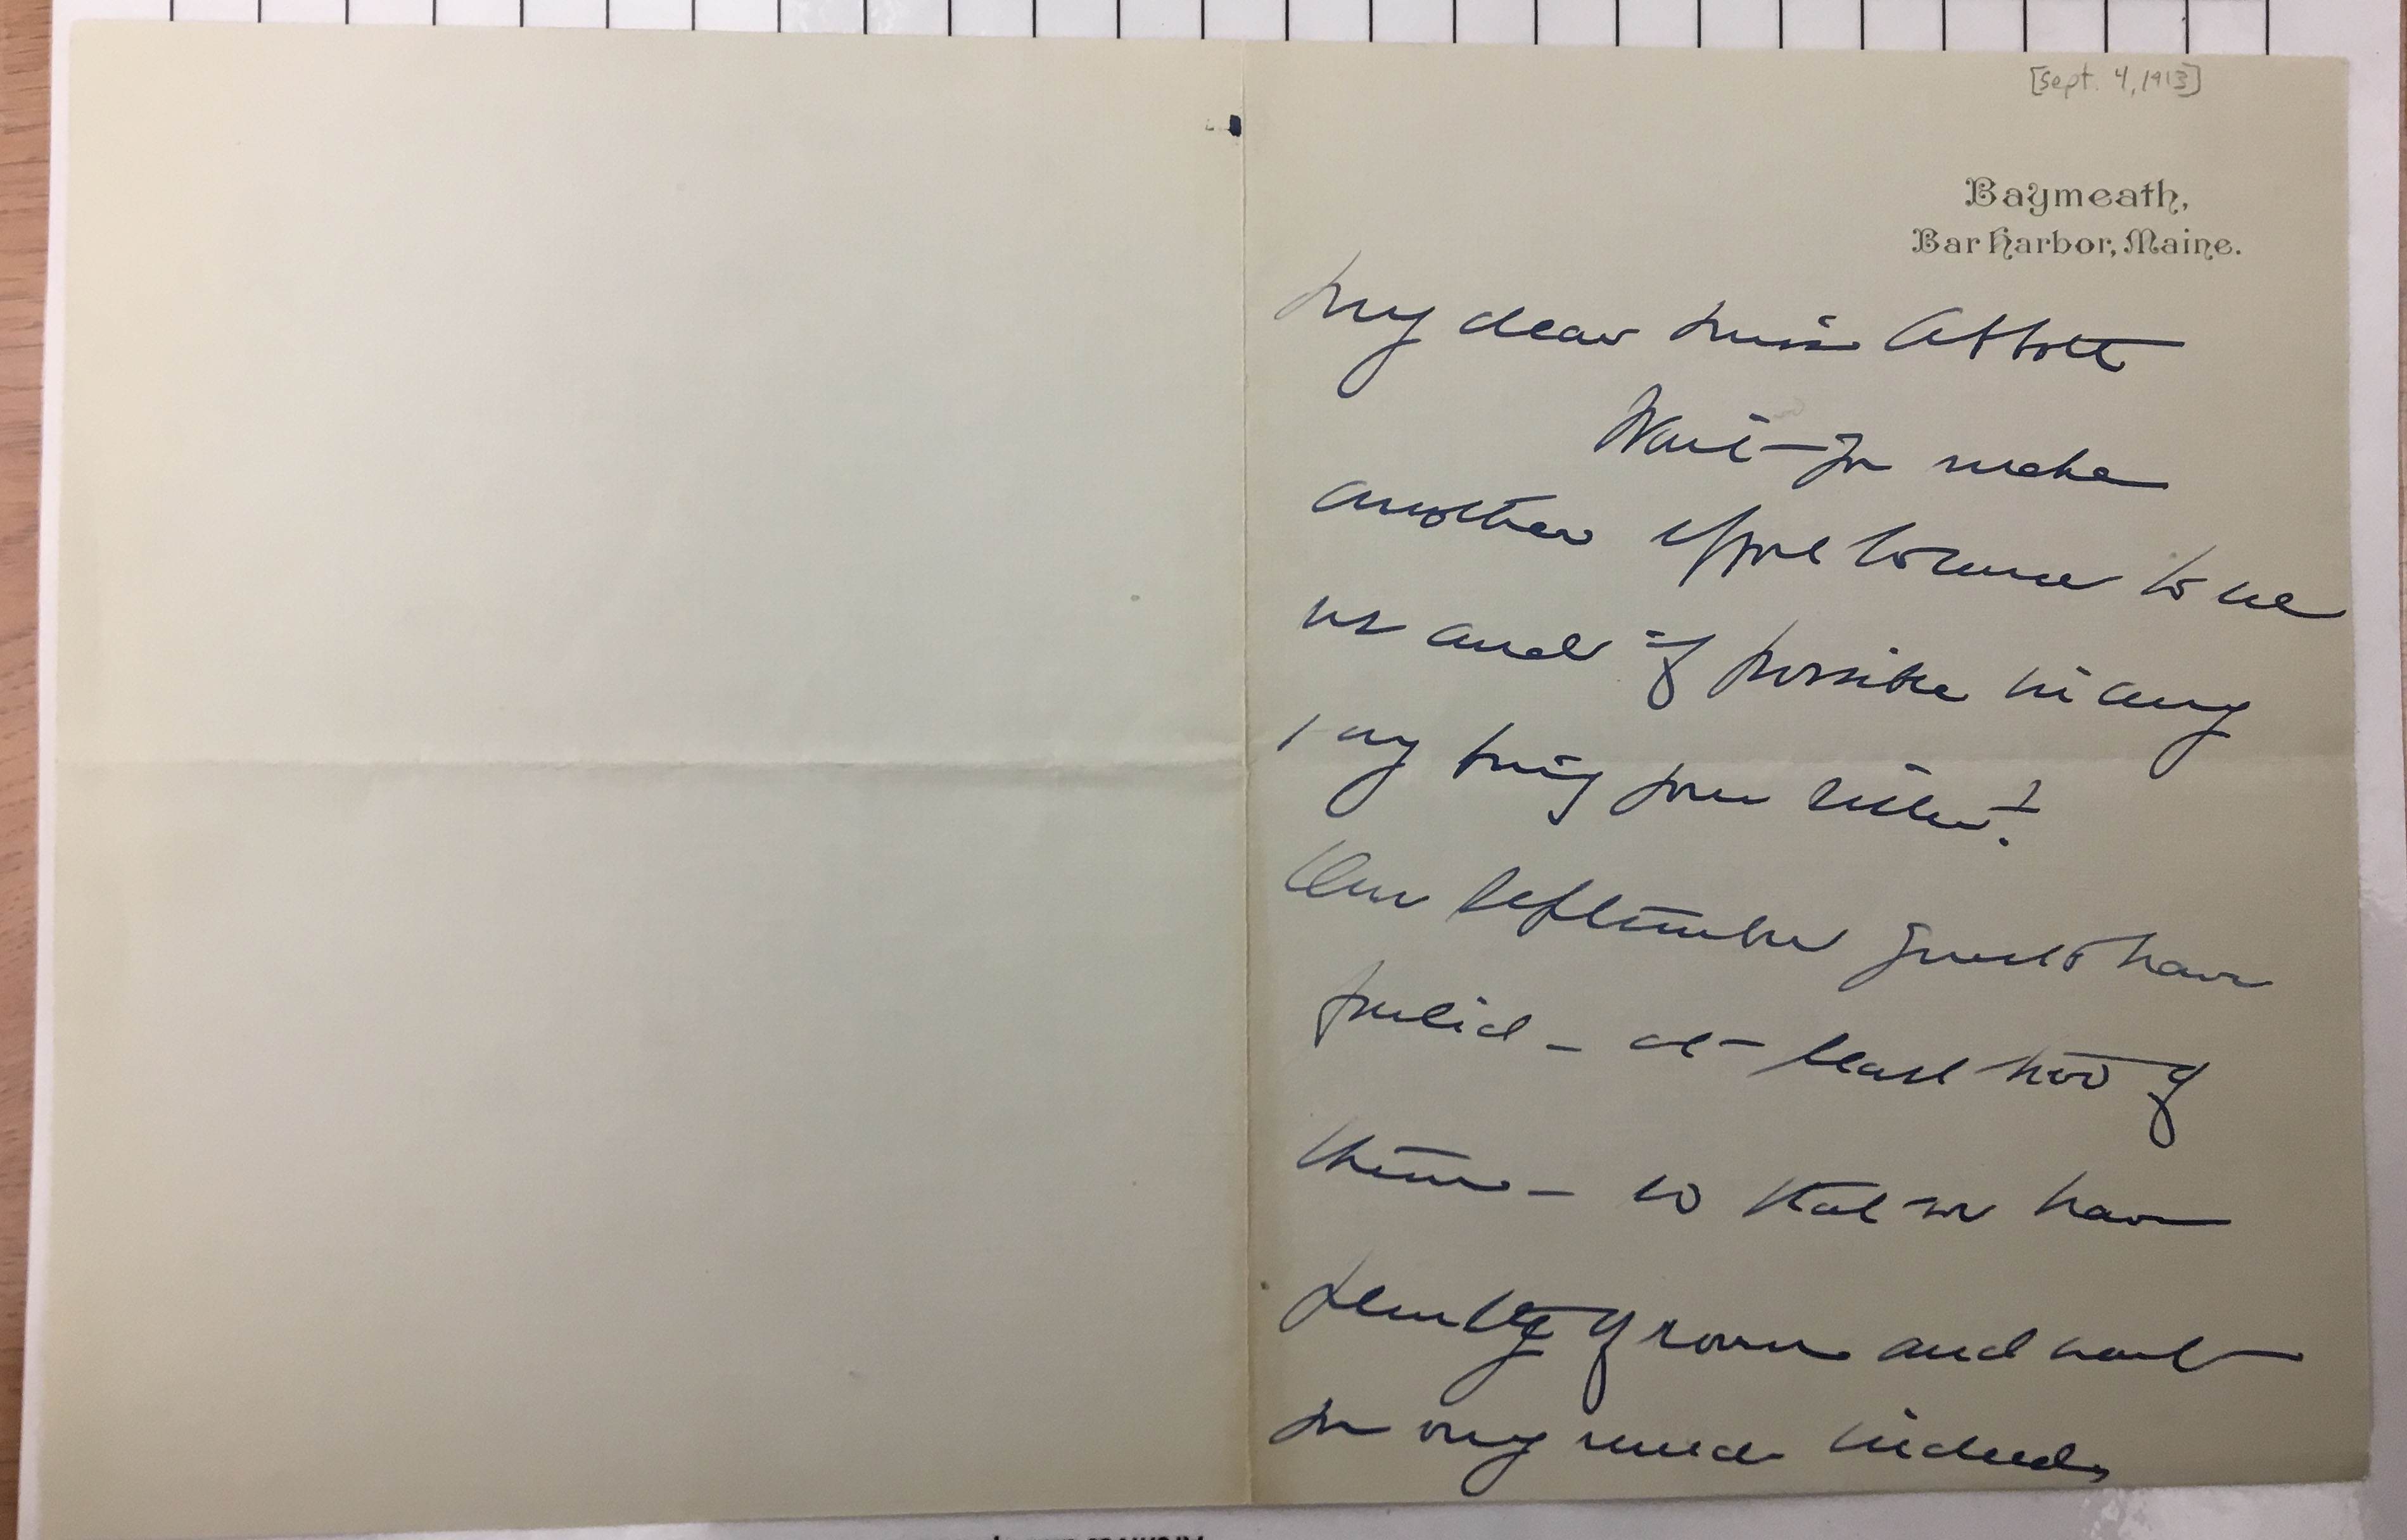 [Sept. 4, 1913]
Baymeath,
Bar Harbor, Maine.
My dear Miss Abbott
Won't you make
another effort to come to see
us and if possible in any
way bring your sister?
Our September guests have
failed - at least two of
them - so that we have
plenty of room and want
you very much indeed,